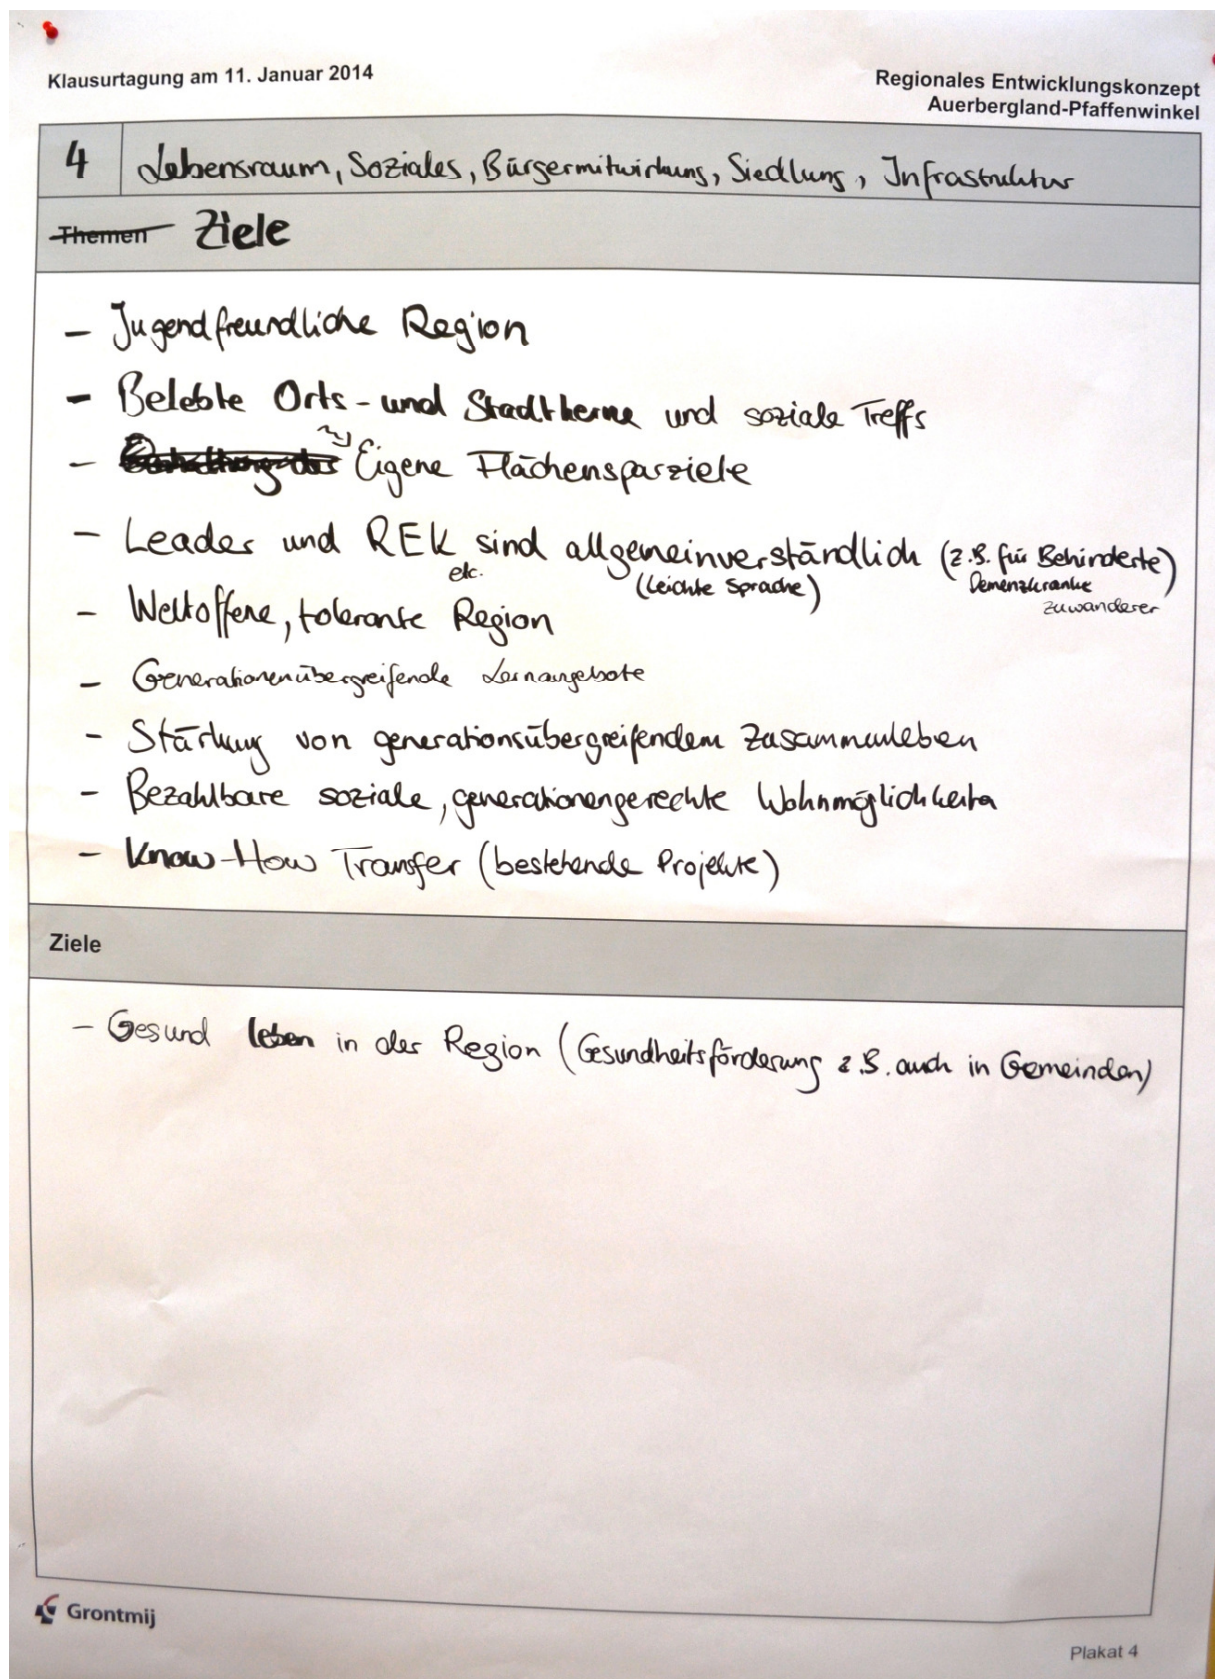 Klausurtagung am 11. Januar 2014
Regionales Entwicklungskonzept
Auerbergland-Pfaffenwinkel
4 Lebensraum, Soziales, Bürgermitwirkung, Siedlung, Infrastruktur
Themen Ziele
- Jugendfreundliche Region
- Belebte Orts- und Stadtkerne und soziale Treffs
- Eigene Flächensparziele
- Leader und REK etc. sind allgemeinverständlich (z.B. für Behinderte)
(Leichte Sprache) Demenzkranke
Zuwanderer
- Weltoffene, tolerante Region
- Generationenübergreifende Lernangebote
- Stärkung von generationsübergreifendem Zusammenleben
- Bezahlbare soziale, generationengerechte Wohnmöglichkeiten
- Know-How Transfer (bestehende Projekte)
Ziele
- Gesund leben in der Region (Gesundheitsförderung z.B. auch in Gemeinden)
Grontmij
Plakat 4